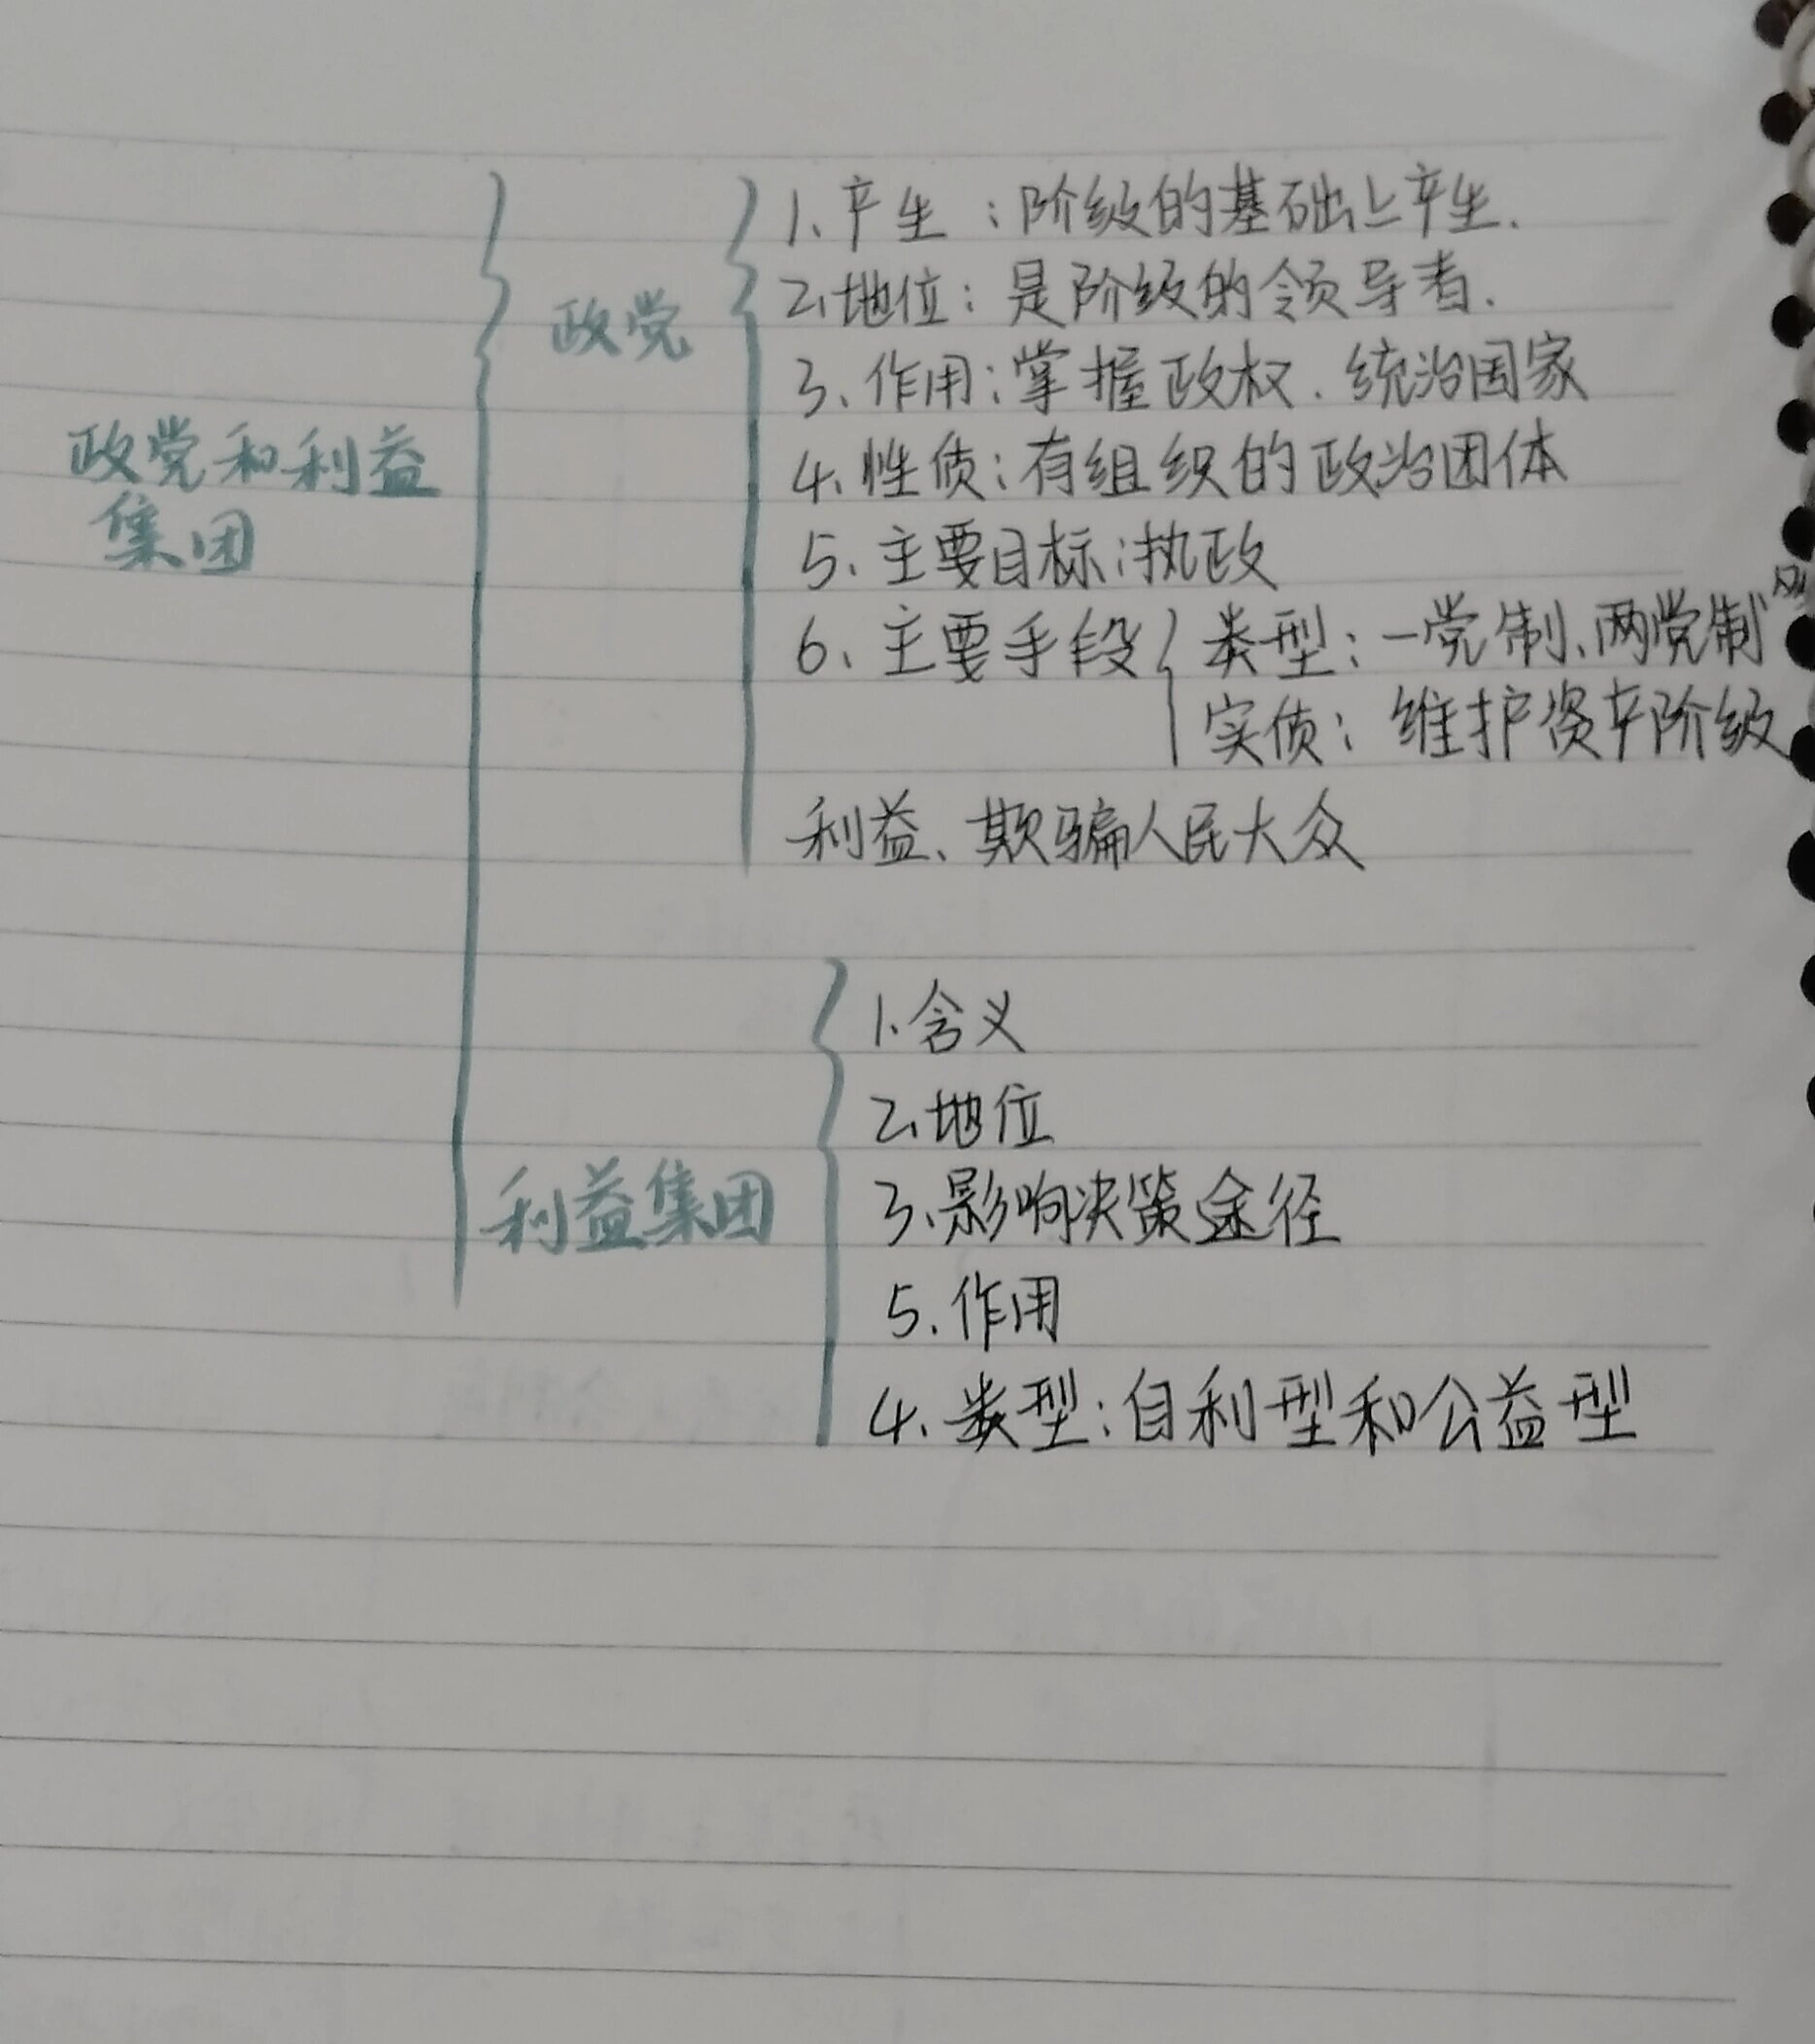 政党和利益
集团
政党
1、产生：阶级的基础上产生.
2、地位：是阶级的领导者.
3、作用：掌握政权.统治国家
4、性质：有组织的政治团体
5、主要目标：执政
6、主要手段
类型：一党制、两党制
实质：维护资产阶级
利益、欺骗人民大众
利益集团
1、含义
2、地位
3、影响决策途径
5、作用
4、类型：自利型和公益型